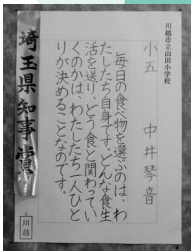 川越市立山田小学校
小五　中井琴音
毎日の食べ物を選ぶのは、わ
たしたち自身です。どんな食生
活を送り、どう食と関わってい
くのかは、わたしたち一人ひと
りが決めることなのです。
埼玉県知事賞
川越